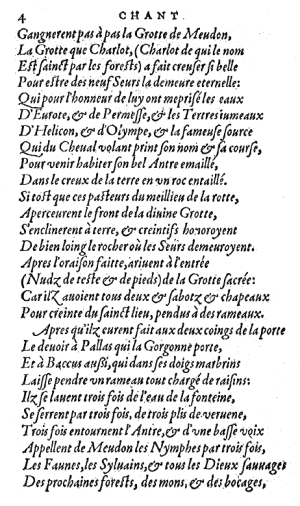 4 CHANT
Gangnerent pas à pas la Grotte de Meudon,
La Grotte que Charlot, (Charlot de qui le nom
Est sainct par les forests) a fait creuser si belle
Pour estre des neuf Seurs la demeure eternelle:
Qui pour l'honneur de luy ont meprisé les eaux
D'Eurote, & de Permesse, & les Tertres iumeaux
D'Helicon, & d'Olympe, & la fameuse source
Qui du Cheual volant print son nom & sa course,
Pour venir habiter son bel Antre emaillé,
Dans le creux de la terre en vn roc entaillé.
Si tost que ces pasteurs du meillieu de la rotte,
Aperceurent le front de la diuine Grotte,
S'enclinerent à terre, & creintifs honoroyent
De bien loing le rocher où les Seurs demeuroyent.
Apres l'oraison faitte, ariuent à l'entrée
(Nudz de teste & de pieds) de la Grotte sacrée:
Car ilz auoient tous deux & sabotz & chapeaux
Pour creinte du sainct lieu, pendus à des rameaux.
Apres qu'ilz eurent fait aux deux coings de la porte
Le deuoir à Pallas qui la Gorgonne porte,
Et à Baccus aussi, qui dans ses doigs marbrins
Laisse pendre vn rameau tout chargé de raisins:
Ilz se lauent trois fois de l'eau de la fonteine,
Se serrent par trois fois, de trois plis de veruene,
Trois fois entournent l'Antre, & d'vne basse voix
Appellent de Meudon les Nymphes par trois fois,
Les Faunes, les Syluains, & tous les Dieux sauuages
Des prochaines forests, des mons, & des bocages,